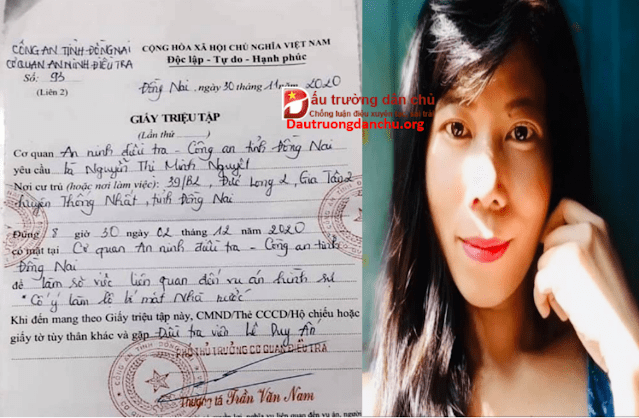 CÔNG AN TỈNH ĐỒNG NAI
CƠ QUAN AN NINH ĐIỀU TRA
Số: 93
(Liên 2)
CỘNG HÒA XÃ HỘI CHỦ NGHĨA VIỆT NAM
Độc lập - Tự do - Hạnh phúc
Đồng Nai, ngày 30 tháng 11 năm 2020
Đấu trường dân chủ
Chống luận điệu xuyên tạc, sai trái
Dautruongdanchu.org
GIẤY TRIỆU TẬP
(Lần thứ)
Cơ quan An ninh điều tra - Công an tỉnh Đồng Nai
yêu cầu bà Nguyễn Thị Minh Nguyệt
Nơi cư trú (hoặc nơi làm việc): 39/B2, Đức Long 2, Gia Tân 2
huyện Thống Nhất, tỉnh Đồng Nai
Đúng 8 giờ 30 ngày 02 tháng 12 năm 2020
có mặt tại Cơ quan An ninh điều tra - Công an tỉnh
Đồng Nai
để làm số việc liên quan đến vụ án hình sự
"Cố ý làm lộ bí mật Nhà nước"
Khi đến mang theo Giấy triệu tập này, CMND/Thẻ CCCD/Hộ chiếu hoặc
giấy tờ tùy thân khác và gặp Điều tra viên Lê Duy Ân
PHÓ THỦ TRƯỞNG CƠ QUAN ĐIỀU TRA
Thượng tá Trần Văn Nam